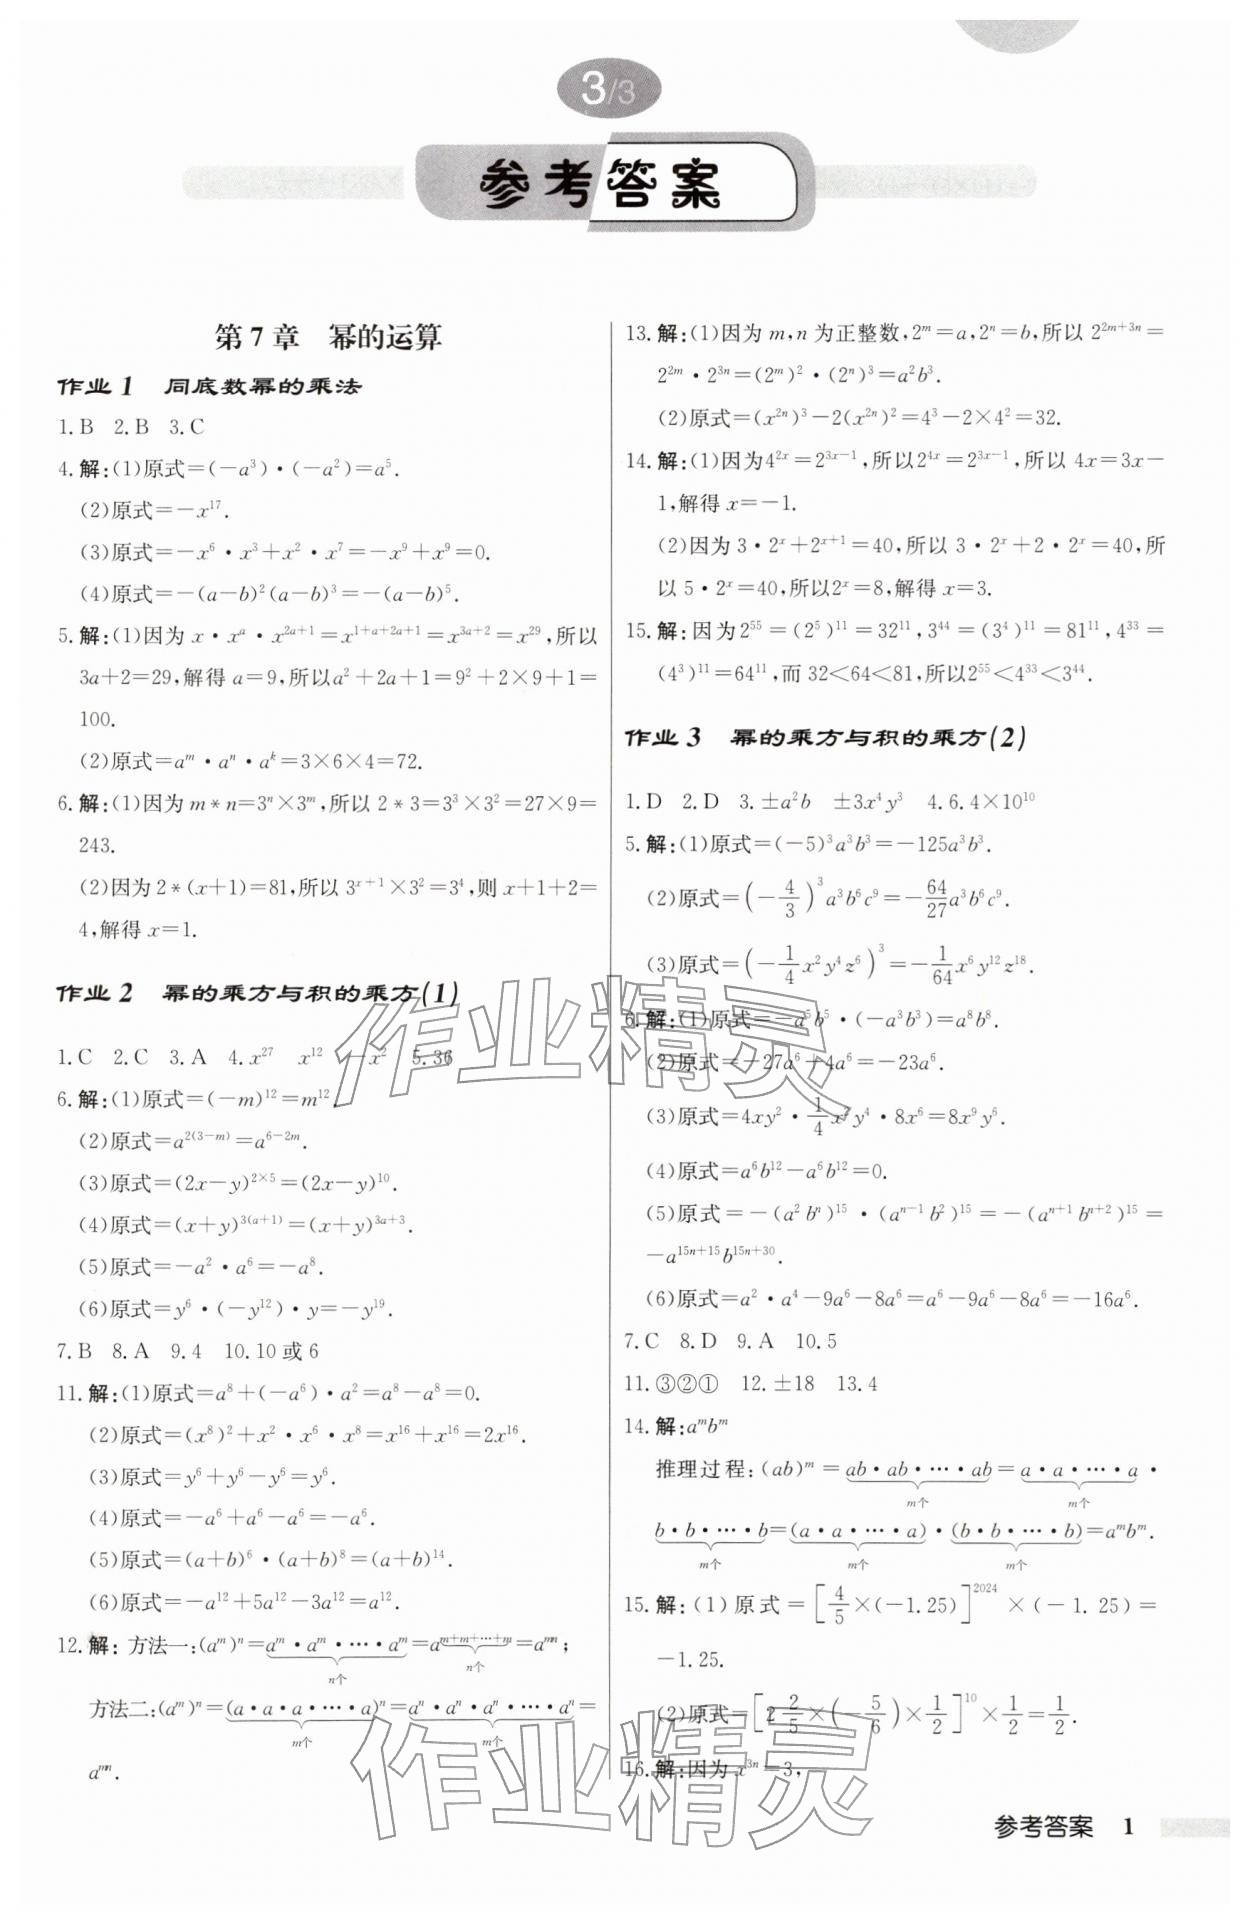 3/3
参考答案
第7章 幂的运算
作业1 同底数幂的乘法
1.B 2.B 3.C
4.解:(1)原式=(-a³)·(-a²)=a⁵.
(2)原式=-x¹⁷.
(3)原式=-x⁶·x³+x²·x⁷=-x⁹+x⁹=0.
(4)原式=-(a-b)²(a-b)³=-(a-b)⁵.
5.解:(1)因为 x·x^a·x^{2a+1}=x^{1+a+2a+1}=x^{3a+2}=x²⁹,所以
3a+2=29,解得 a=9,所以a²+2a+1=9²+2×9+1=
100.
(2)原式=a^m·a^n·a^k=3×6×4=72.
6.解:(1)因为 m*n=3^n×3^m,所以 2*3=3³×3²=27×9=
243.
(2)因为 2*(x+1)=81,所以 3^{x+1}×3²=3⁴,则 x+1+2=
4,解得 x=1.
作业2 幂的乘方与积的乘方(1)
1.C 2.C 3.A 4.x²⁷ x¹² -x² 5.36
6.解:(1)原式=(-m)¹²=m¹².
(2)原式=a^{2(3-m)}=a^{6-2m}.
(3)原式=(2x-y)^{2×5}=(2x-y)¹⁰.
(4)原式=(x+y)^{3(a+1)}=(x+y)^{3a+3}.
(5)原式=-a²·a⁶=-a⁸.
(6)原式=y⁶·(-y¹²)·y=-y¹⁹.
7.B 8.A 9.4 10.10或6
11.解:(1)原式=a⁸+(-a⁶)·a²=a⁸-a⁸=0.
(2)原式=(x⁸)²+x²·x⁶·x⁸=x¹⁶+x¹⁶=2x¹⁶.
(3)原式=y⁶+y⁶-y⁶=y⁶.
(4)原式=-a⁶+a⁶-a⁶=-a⁶.
(5)原式=(a+b)⁶·(a+b)⁸=(a+b)¹⁴.
(6)原式=-a¹²+5a¹²-3a¹²=a¹².
12.解:方法一:(a^m)^n=a^m·a^m·…·a^m=a^{m+m+…+m}=a^{mn};
n个 n个
方法二:(a^m)^n=(a·a·a·…·a)^n=a^n·a^n·a^n·…·a^n=
m个 m个
a^{mn}.
13.解:(1)因为 m,n 为正整数,2^m=a,2^n=b,所以 2^{2m+3n}=
2^{2m}·2^{3n}=(2^m)²·(2^n)³=a²b³.
(2)原式=(x^{2n})³-2(x^{2n})²=4³-2×4²=32.
14.解:(1)因为4^{2x}=2^{3x-1},所以2^{4x}=2^{3x-1},所以 4x=3x-
1,解得 x=-1.
(2)因为 3·2^x+2^{x+1}=40,所以 3·2^x+2·2^x=40,所
以 5·2^x=40,所以2^x=8,解得 x=3.
15.解:因为2⁵⁵=(2⁵)¹¹=32¹¹,3⁴⁴=(3⁴)¹¹=81¹¹,4³³=
(4³)¹¹=64¹¹,而 32<64<81,所以2⁵⁵<4³³<3⁴⁴.
作业3 幂的乘方与积的乘方(2)
1.D 2.D 3.±a²b ±3x⁴y³ 4.6.4×10¹⁰
5.解:(1)原式=(-5)³a³b³=-125a³b³.
(2)原式=(-4/3)³a³b⁶c⁹=-64/27a³b⁶c⁹.
(3)原式=(-1/4x²y⁴z⁶)³=-1/64x⁶y¹²z¹⁸.
6.解:(1)原式=-a⁵b⁵·(-a³b³)=a⁸b⁸.
(2)原式=-27a⁶+4a⁶=-23a⁶.
(3)原式=4xy²·1/4x²y⁴·8x⁶=8x⁹y⁶.
(4)原式=a⁶b¹²-a⁶b¹²=0.
(5)原式=-(a²b^n)¹⁵·(a^{n-1}b²)¹⁵=-(a^{n+1}b^{n+2})¹⁵=
-a^{15n+15}b^{15n+30}.
(6)原式=a²·a⁴-9a⁶-8a⁶=a⁶-9a⁶-8a⁶=-16a⁶.
7.C 8.D 9.A 10.5
11.③②① 12.±18 13.4
14.解:a^mb^m
推理过程:(ab)^m=ab·ab·…·ab=a·a·…·a·
m个 m个
b·b·…·b=(a·a·…·a)·(b·b·…·b)=a^mb^m.
m个 m个 m个
15.解:(1)原式=[4/5×(-1.25)]²⁰²⁴×(-1.25)=
-1.25.
(2)原式=[2 2/5×(-5/6)×1/2]¹⁰×1/2=1/2.
16.解:因为 x^{3n}=3,
作业精灵
作业精灵
参考答案 1